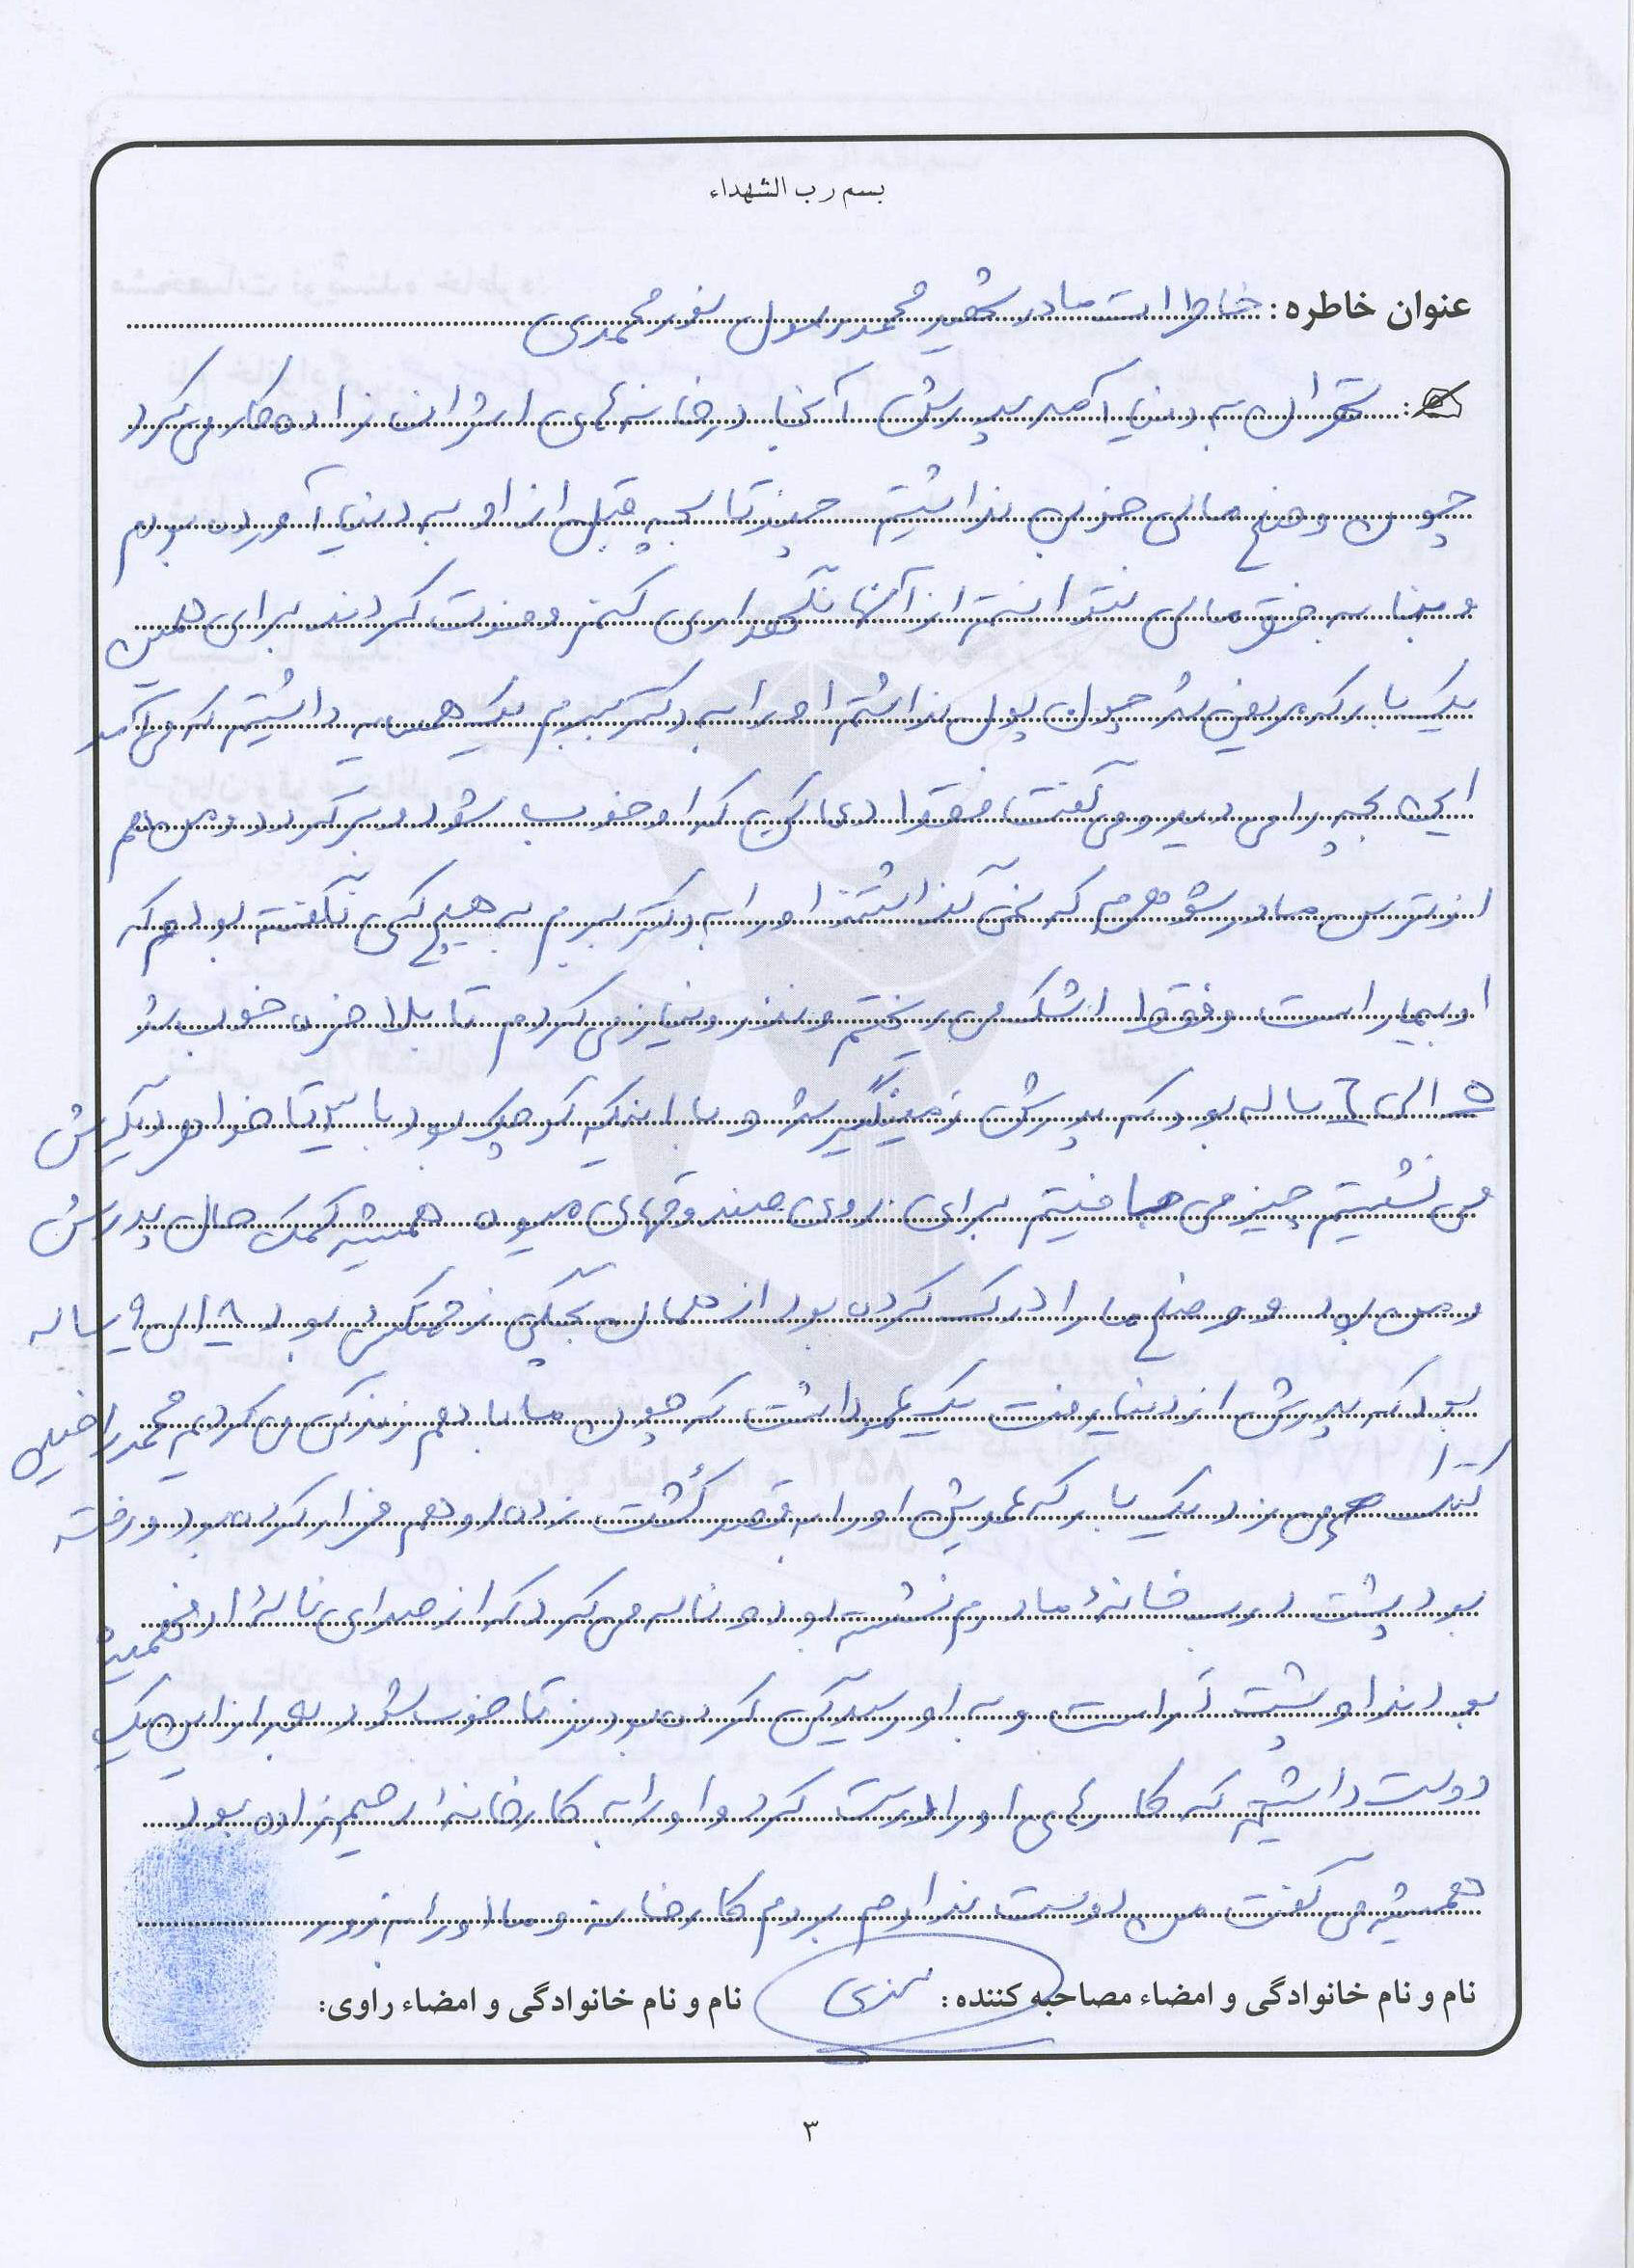 بسم رب الشهداء
عنوان خاطره: خاطرات مادر شهید محمدرسول نورمحمدی
تهران به دنیا آمد پدرش آنجا در خانه‌های اشراف زاده کار می‌کرد
چون وضع مالی خوبی نداشتیم چند تا بچه قبل از او به دنیا آورده بودم
و بنا به فقر مالی نتوانستم از آنها نگهداری کنم و فوت کردند برای همین
یک بار که مریض شد چون پول نداشتم او را به دکتر ببرم یک همسایه داشتیم که می‌آمد
این بچه را می دید و می گفت فقط دعا کن که او خوب شود و برگردد و من هم
از ترس مادر شوهرم که نمی گذاشتند او را به دکتر ببرم به هیچ کس نگفته بودم که
او بیمار است و فقط اشک می ریختم و نذر و نیاز می کردم تا بلاخره خوب شد
۵ الی ٦ ساله بود که پدرش زمینگیر شد و با اینکه کوچک بود با ۳ تا خواهر دیگرش
می نشستیم چیز می بافتیم برای روی صندوقهای میوه همیشه کمک حال پدرش
و من بود و وضع ما را درک کرده بود از همان بچگی زحمتکش بود ۸ الی ۹ ساله
بود که پدرش از دنیا رفت یک عمو داشت که چون ما با هم زندگی می کردیم محمد را خیلی
کتک می زد یک بار که عمویش او را به قصد کُشت زده او هم فرار کرده بود و رفته
بود پشت درب خانۀ مادرم نشسته بود و ناله می کرد که از صدای نالۀ او فهمیده
بودند او پشت در است و به او رسیدگی کرده بودند تا خوب شود بعد از این یک
دوست داشتیم که کارهای او را درست کرد و او را به کارخانۀ رحیم زاده بود
همیشه می گفت من دوست ندارم بروم کارخانه و ما او را به زور
نام و نام خانوادگی و امضاء مصاحبه کننده: نام و نام خانوادگی و امضاء راوی:
۳